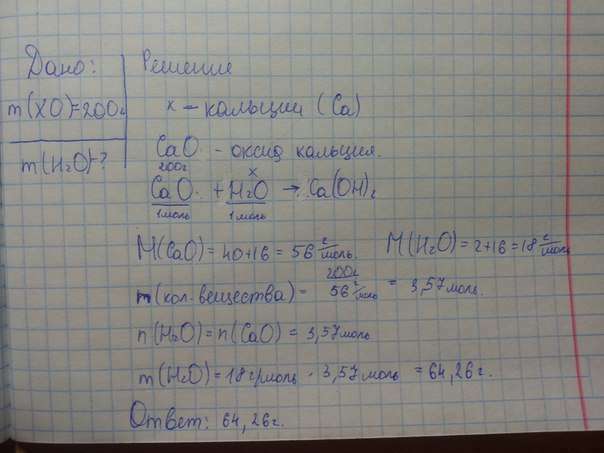 Дано:
m(XO)=200г
m(H₂O)-?
Решение
x – кальции (Ca)
CaO - оксид кальция.
200г
x
CaO + H₂O → Ca(OH)₂
1моль 1моль
M(CaO) = 40+16 = 56 г/моль. M(H₂O) = 2+16 = 18 г/моль
n(кол-вещества) = 200г / 56 г/моль = 3,57 моль.
n(H₂O) = n(CaO) = 3,57 моль
m(H₂O) = 18 г/моль · 3,57 моль = 64,26 г.
Ответ: 64,26г.